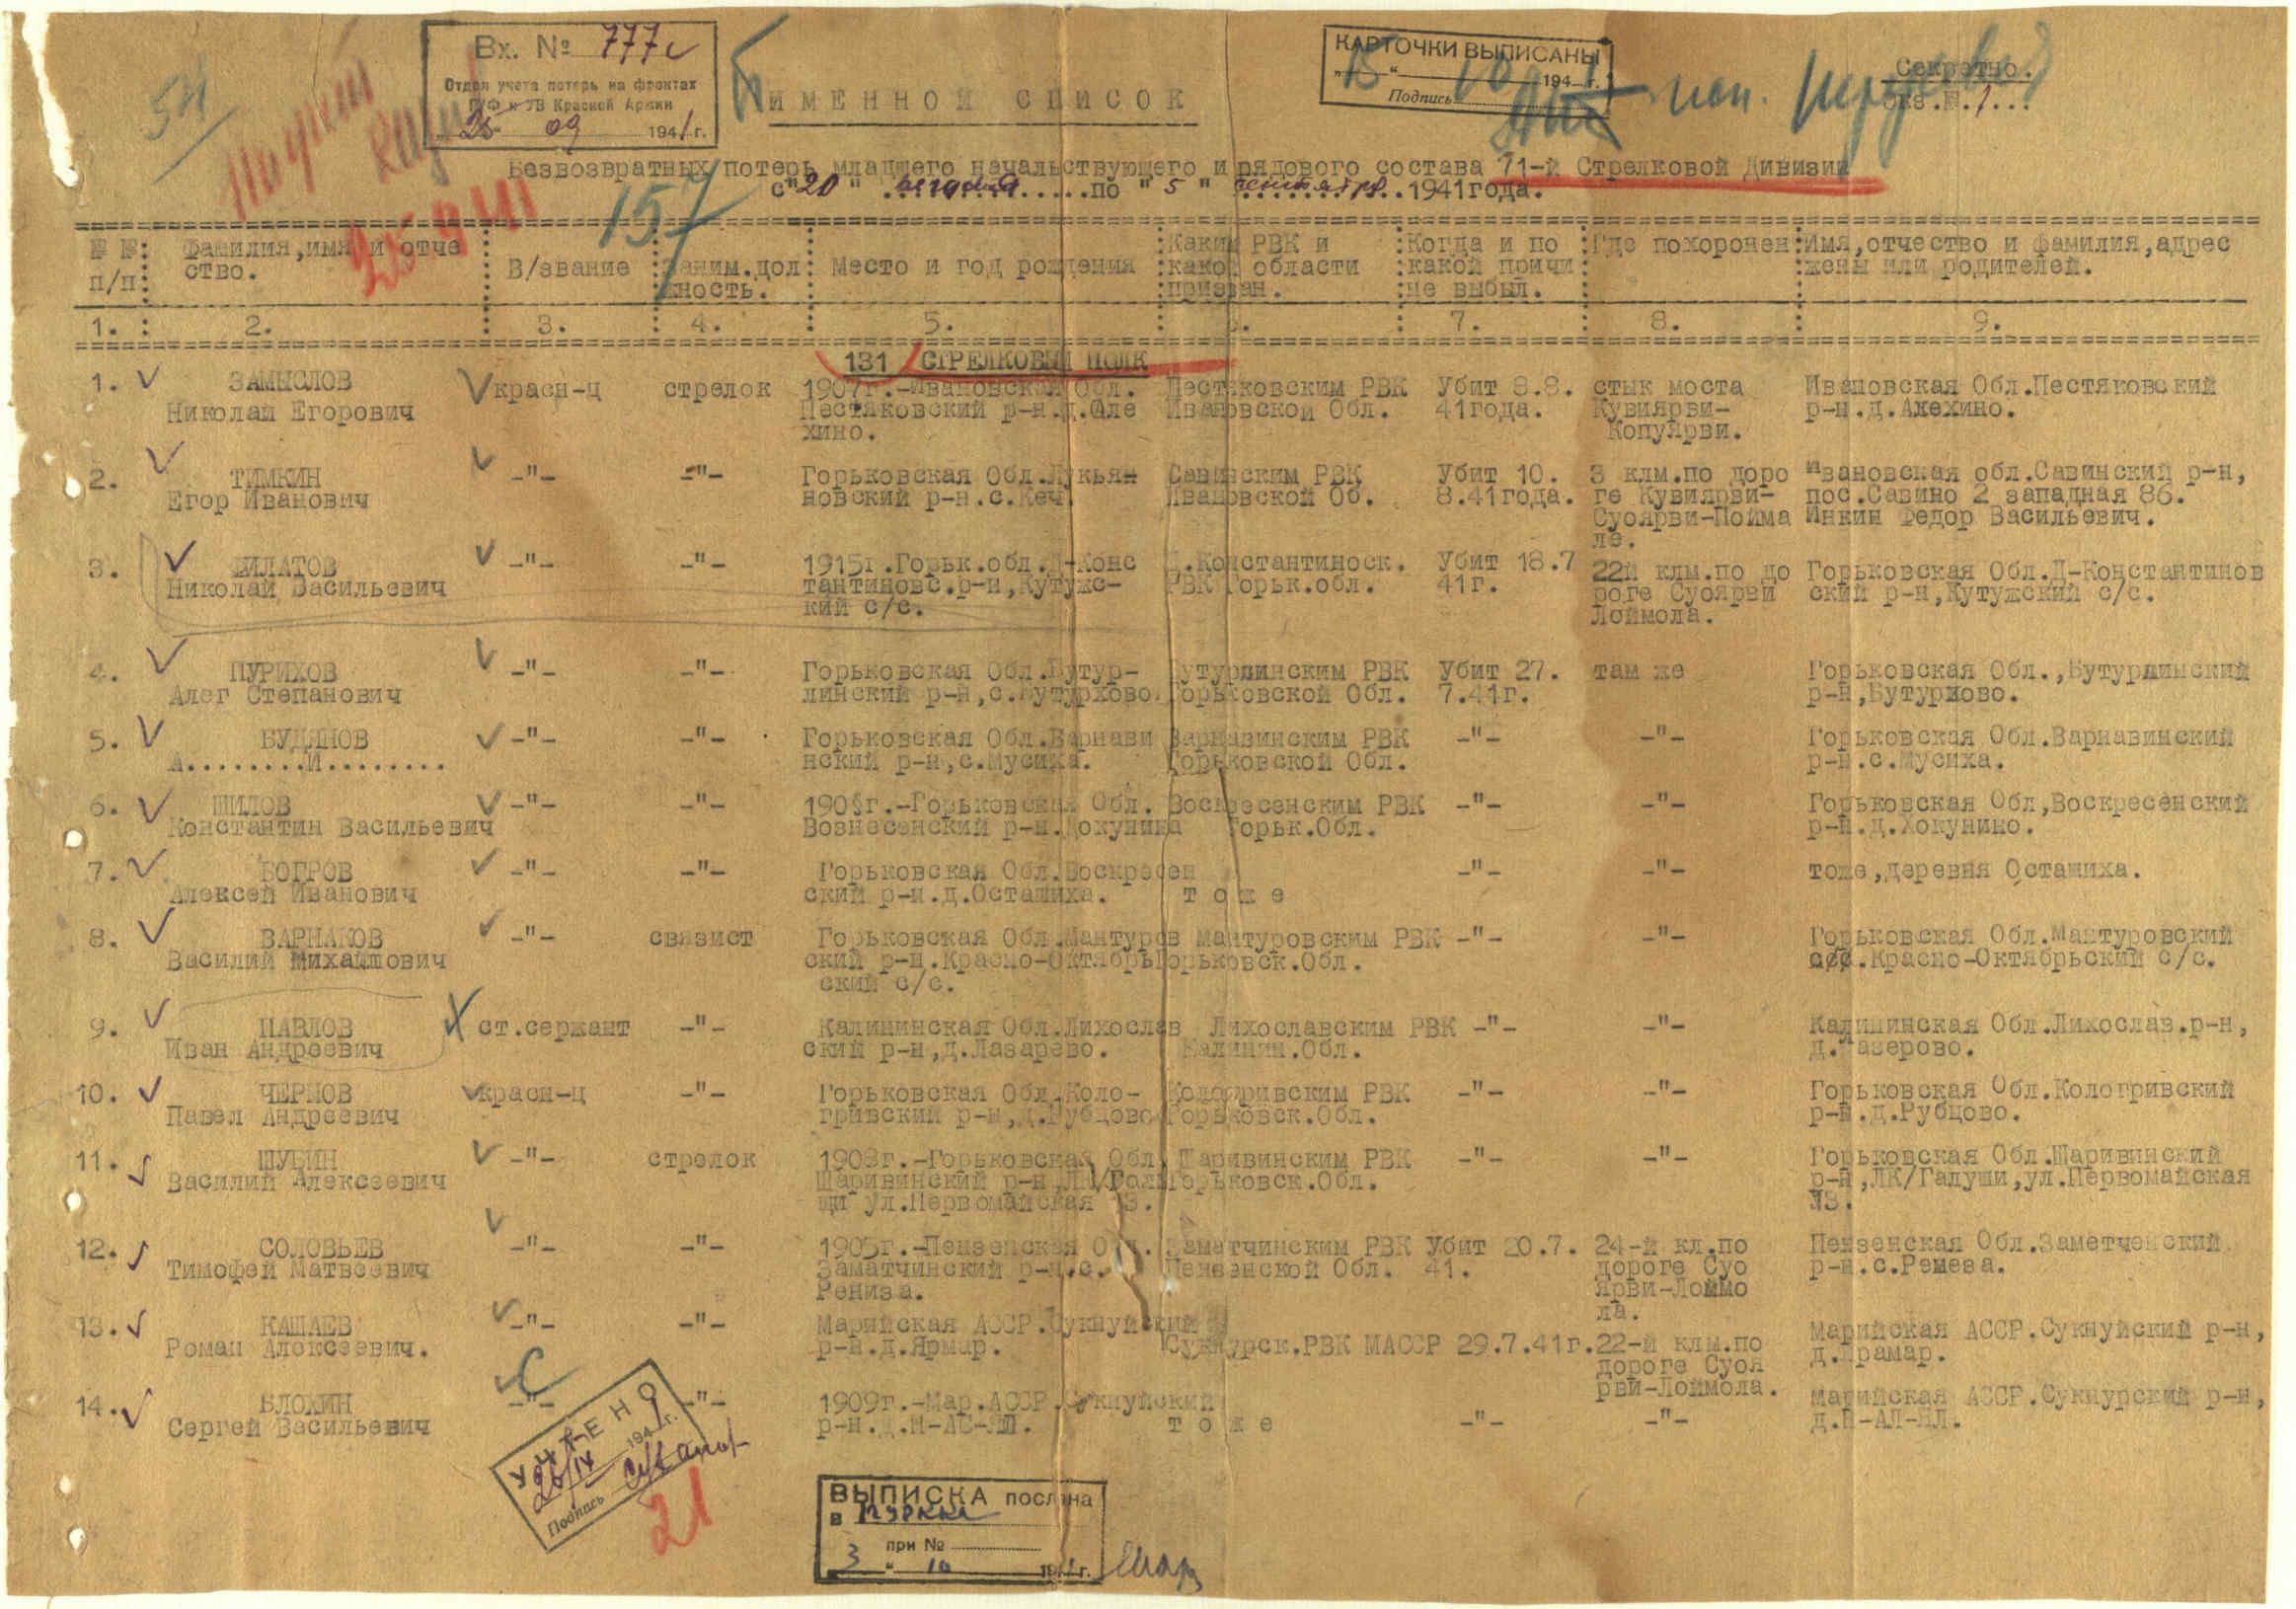 Вх. № 777с
Отдел учета потерь на фронтах
ГУФ и УВ Красной Армии
25 09 1941 г.
КАРТОЧКИ ВЫПИСАНЫ
"15" 10 194 г.
Подпись
Секретно.
Экз.№.1...
ИМЕННОЙ СПИСОК
Безвозвратных потерь младшего начальствующего и рядового состава 71-й Стрелковой Дивизии
с "20" августа по "5" сентября 1941года.
157
№ №: Фамилия,имя и отче В/звание Заним.дол Место и год рождения Каким РВК и Когда и по Где похоронен Имя,отчество и фамилия,адрес
п/п: ство. жность. какой области какой причи жены или родителей.
призван. не выбыл.
1. 2. 3. 4. 5. 6. 7. 8. 9.
131 СТРЕЛКОВЫЙ ПОЛК
1. ЗАМЫСЛОВ красн-ц стрелок 1907г.-Ивановской Обл. Пестяковским РВК Убит 8.8. стык моста Ивановская Обл.Пестяковский
Николай Егорович Пестяковский р-н.д.Але Ивановской Обл. 41года. Кувиярви- р-н.д.Алехино.
хино. Копуярви.
2. ТИМКИН -"- -"- Горьковская Обл.Лукьян Савинским РВК Убит 10. 3 клм.по доро Ивановская обл.Савинский р-н,
Егор Иванович новский р-н.с.Кеч. Ивановской Об. 8.41года. ге Кувиярви- пос.Савино 2 западная 86.
Суоярви-Пойма Инкин Федор Васильевич.
ле.
3. ФИЛАТОВ -"- -"- 1915г.Горьк.обл.Д-Конс Д.Константиноск. Убит 18.7 22й клм.по до Горьковская Обл.Д-Константинов
Николай Васильевич тантиновс.р-н,Кутужс- РВК Горьк.обл. 41г. роге Суоярви ский р-н,Кутужский с/с.
кий с/с. Лоймола.
4. ПУРИХОВ -"- -"- Горьковская Обл.Бутур- Бутурлинским РВК Убит 27. там же Горьковская Обл.,Бутурлинский
Алег Степанович линский р-н,с.Бутурхово. Горьковской Обл. 7.41г. р-н,Бутурхово.
5. БУДЯНОВ -"- -"- Горьковская Обл.Варнави Варнавинским РВК -"- -"- Горьковская Обл.Варнавинский
А........И........ нский р-н,с.Мусиха. Горьковской Обл. р-н.с.Мусиха.
6. ШИЛОВ -"- -"- Горьковская Обл. Воскресенским РВК -"- -"- Горьковская Обл,Воскресенский
Константин Васильевич Вознесенский р-н. Горьк.Обл. р-н.д.Докунино.
7. БОГРОВ -"- -"- Горьковская Обл.Воскресен -"- -"- тоже,деревня Осташиха.
Алексей Иванович ский р-н.д.Осташиха. т о ж е
8. ВАРНАКОВ -"- связист Горьковская Обл.Мантуров Мантуровским РВК -"- -"- Горьковская Обл.Мантуровский
Василий Михайлович ский р-н.Красно-Октябрь Горьковск.Обл. .Красно-Октябрьский с/с.
ский с/с.
9. ПАВЛОВ ст.сержант -"- Калининская Обл.Лихослав Лихославским РВК -"- -"- Калининская Обл.Лихослав.р-н,
Иван Андреевич ский р-н,д.Лазарево. Калинин.Обл. д.Лазерово.
10. ЧЕРНОВ красн-ц -"- Горьковская Обл.Коло- Кологривским РВК -"- -"- Горьковская Обл.Кологривский
Павел Андреевич гривский р-н,д.Рубцово Горьковск.Обл. р-н.д.Рубцово.
11. ШУБИН -"- стрелок 1908г.-Горьковская Обл. Шаривинским РВК -"- -"- Горьковская Обл.Шаривинский
Василий Алексеевич Шаривинский р-н Горьковск.Обл. р-н,ЛК/Галуши,ул.Первомайская
щи ул.Первомайская 13. 13.
12. СОЛОВЬЕВ -"- -"- 1905г.-Пензенская Обл. Заматчинским РВК Убит 20.7. 24-й кл.по Пензенская Обл.Заметченский
Тимофей Матвеевич Заматчинский р-н.с. Пензенской Обл. 41. дороге Суо р-н.с.Ремева.
Рениза. ярви-Лоймо
ла.
13. КАШАЕВ -"- -"- Марийская АССР.Сукнуйский Марийская АССР.Сукнуйский р-н,
Роман Алексеевич. р-н.д.Ярмар. Сукнурск.РВК МАССР 29.7.41г. 22-й клм.по д.Ярамар.
дороге Суоя
рви-Лоймола.
14. БЛОХИН -"- -"- 1909г.-Мар.АССР.Сукнуйский Марийская АССР.Сукнурский р-н,
Сергей Васильевич р-н. т о ж е -"- -"- д.Н-АЛ-ЯЛ.
УЧТЕНО
26/IX 194 г.
Подпись
21
ВЫПИСКА послана
в
при №
3 " 10 1941г.